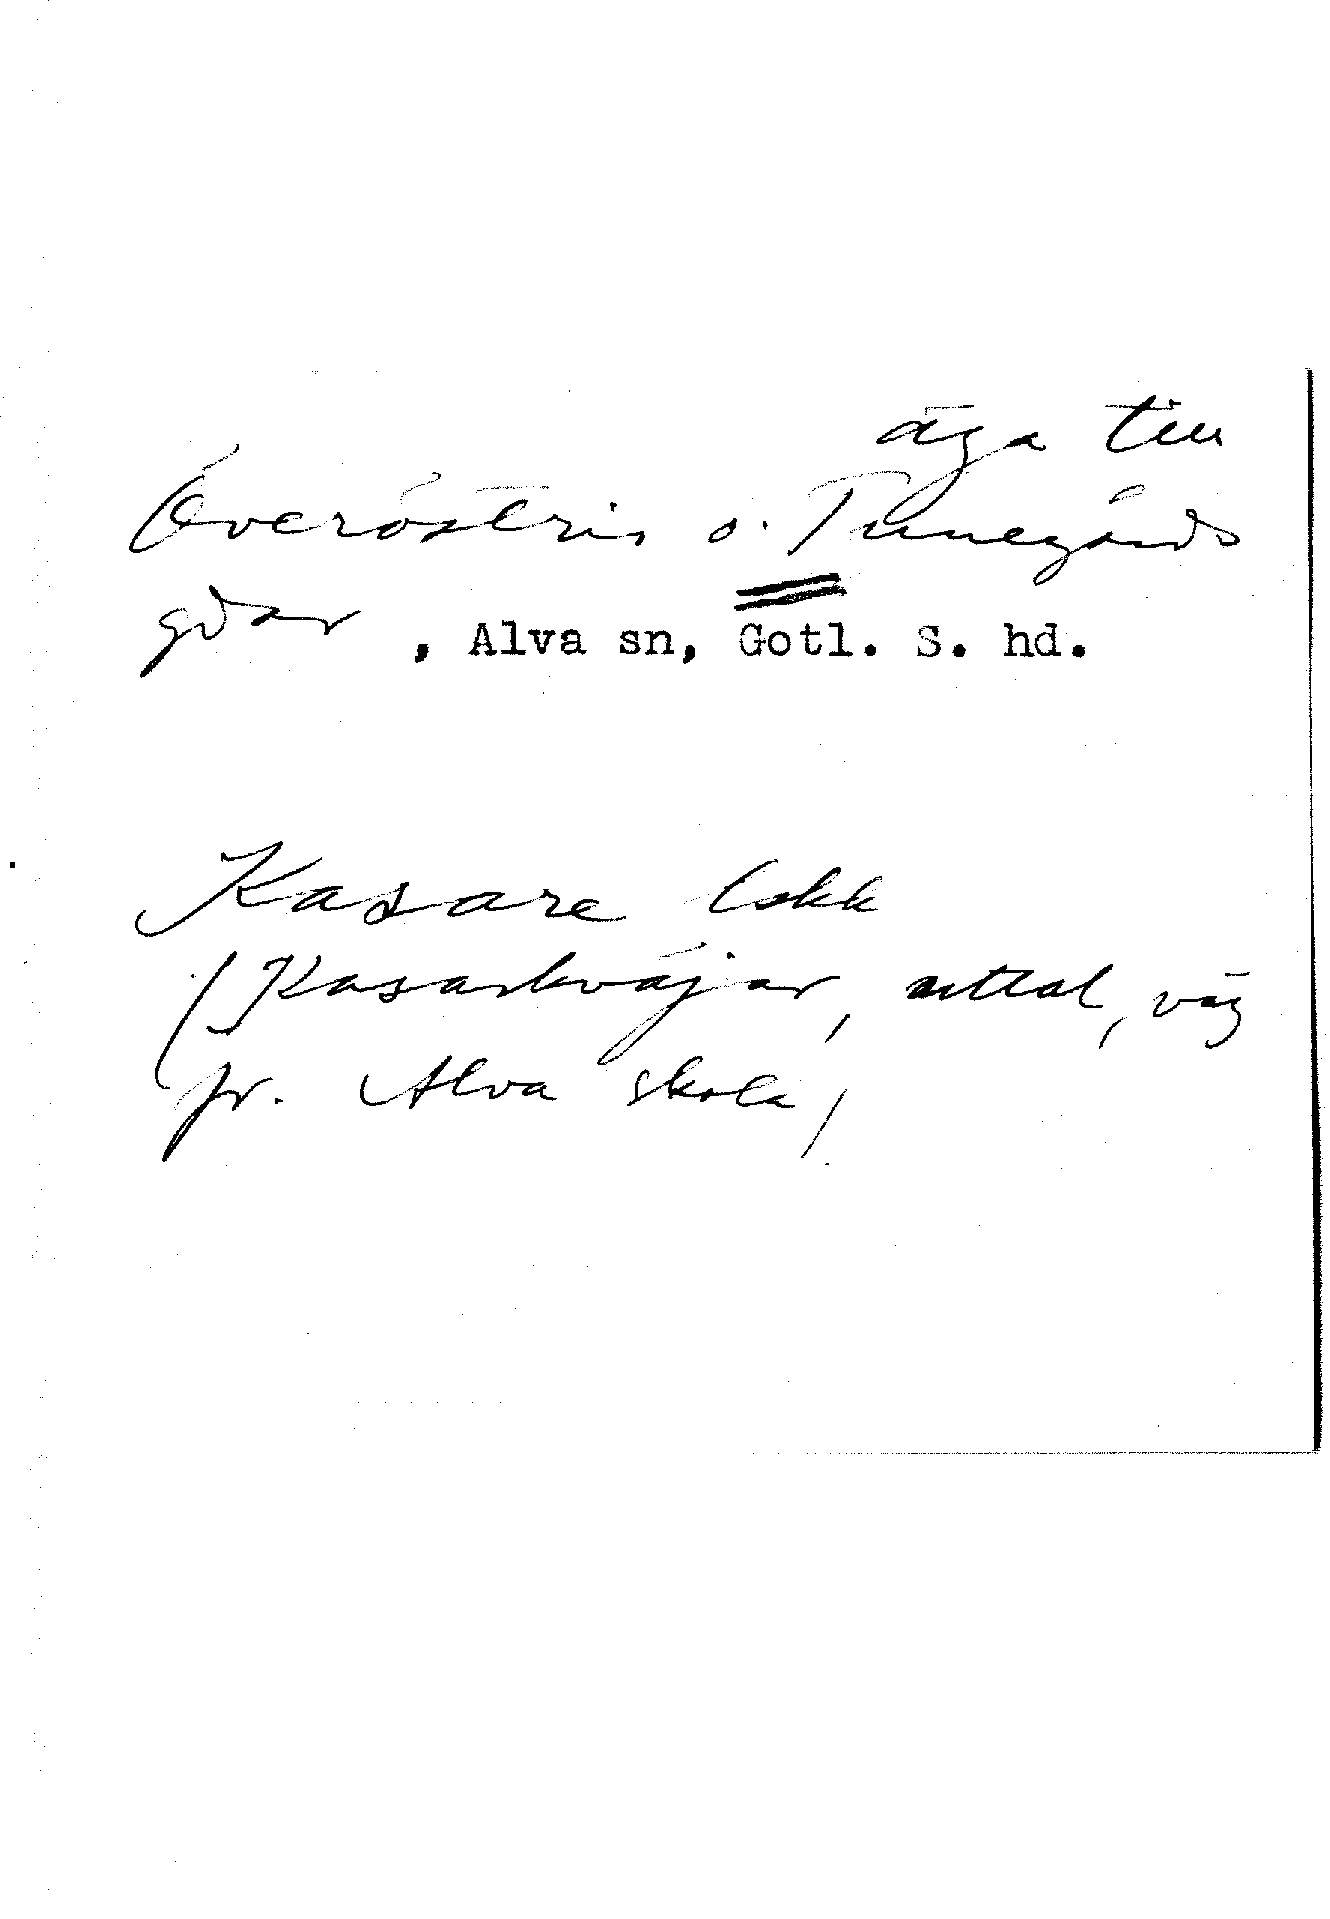 äga till
Överöstris o. Tunegårds
gdar , Alva sn, Gotl. S. hd.
Kasare (skk
(Kasarhväjar, uttal, väg
fr. Alva skola)